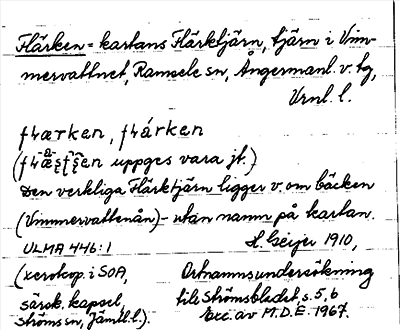 Flärken = kartans Flärktjärn, tjärn i Vim-
mervattnet, Ramsele sn, Ångermanl. v. tg,
Vrnl. l.
fɬærken, fɬárken
uppges vara jt.)
Den verkliga Flärktjärn ligger v. om bäcken
(Vimmervattenån) - utan namn på kartan.
ULMA 446:1 H. Geijer 1910,
(xerokop. i SOA, Ortnamnsundersökning
särsk. kapsel, till Strömsbladet, s. 5, 6
Ströms sn, Jämtl. l.). Exc. av M.D.E. 1967.